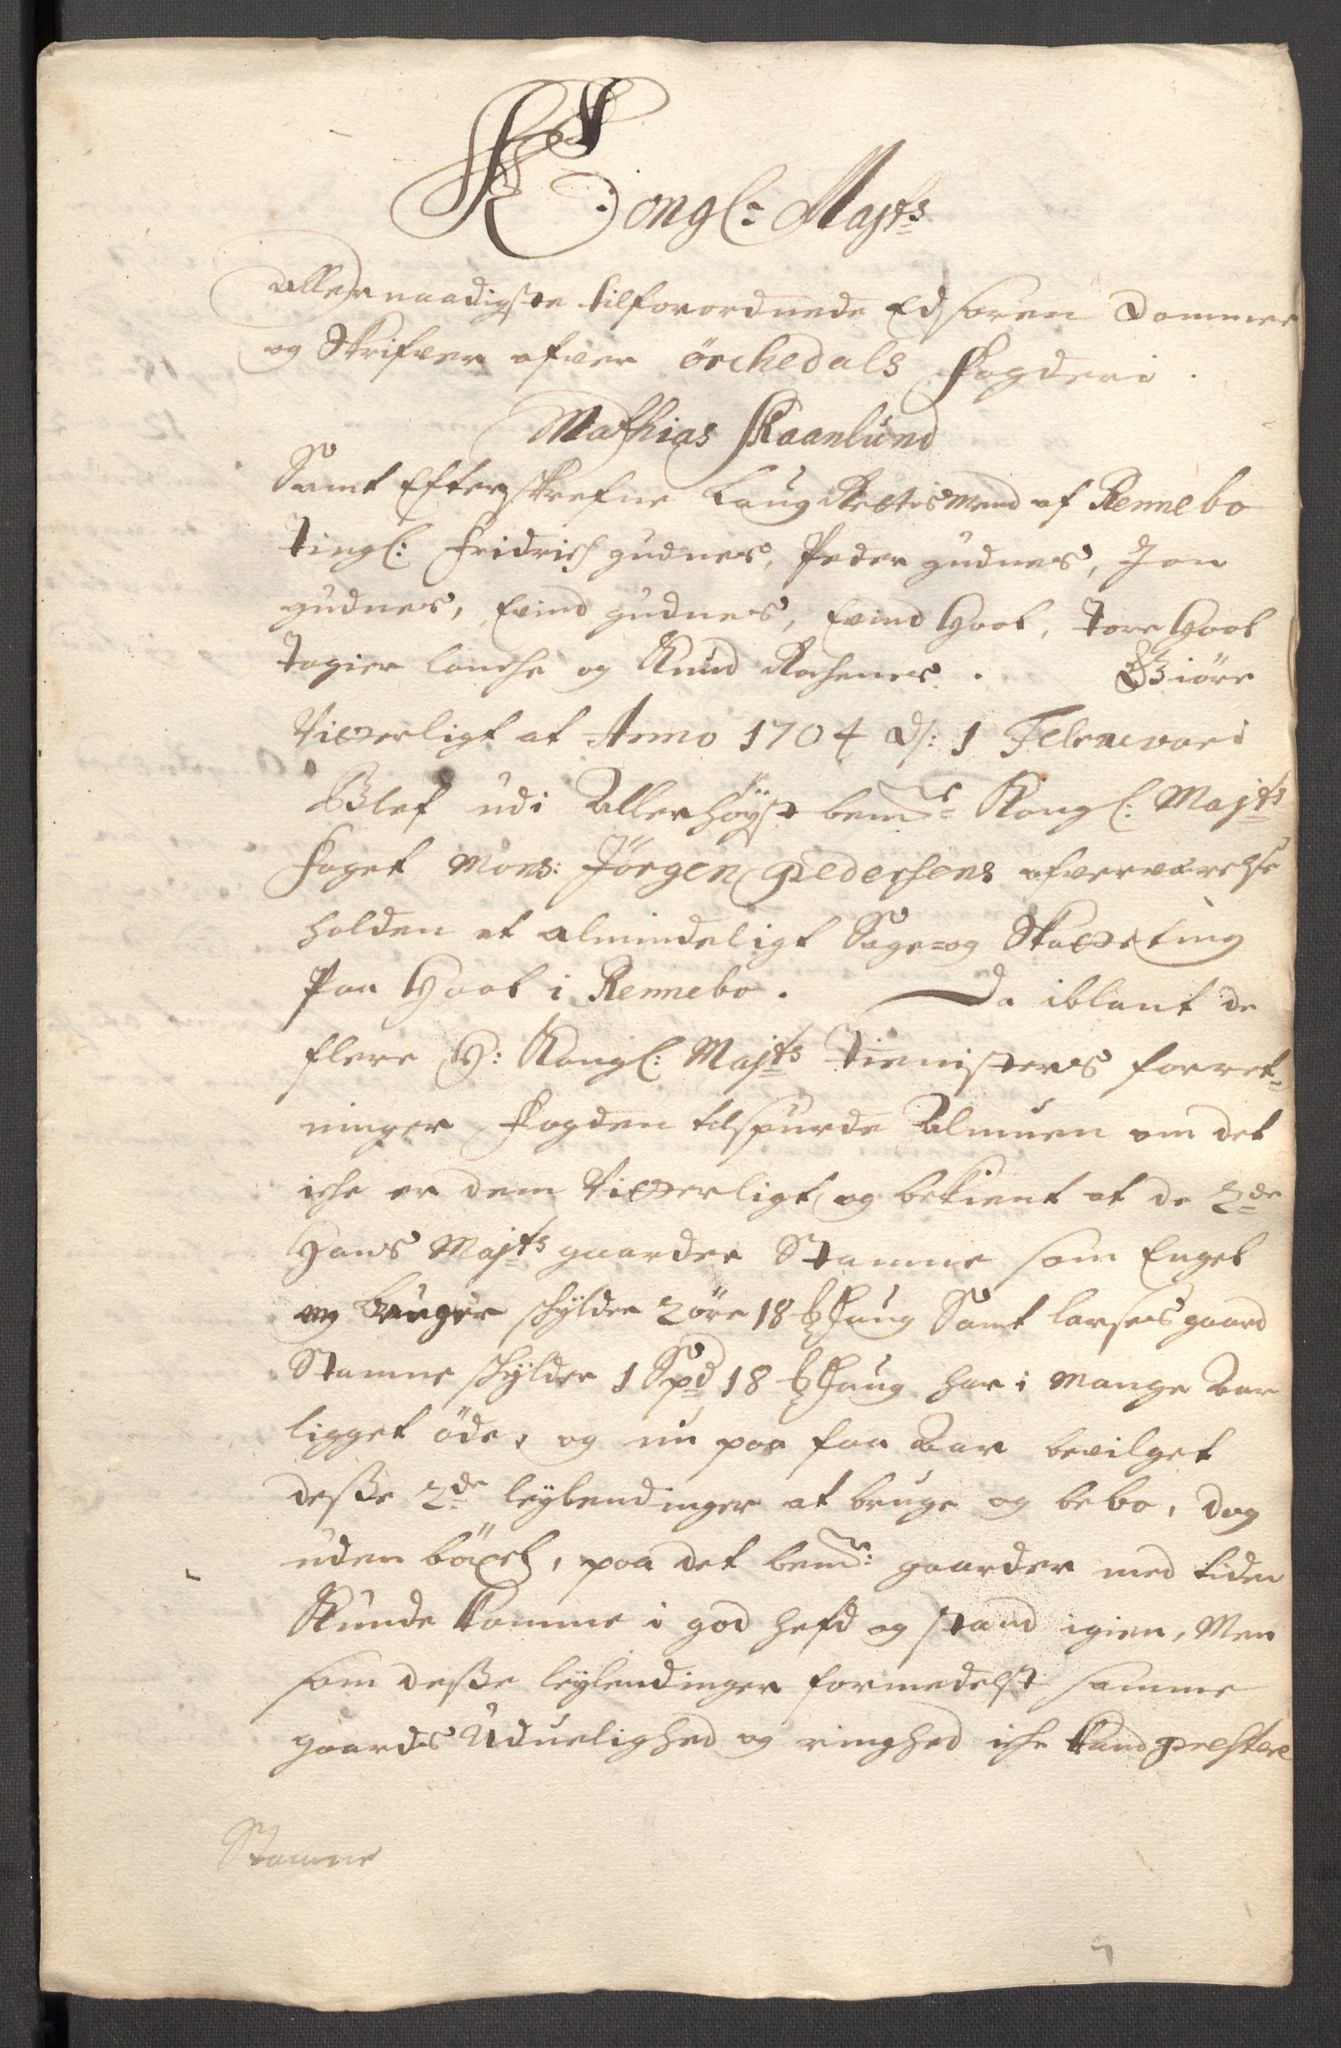 Kongl: Majts
Allernaadigste tilforordnede Edsoren Dommer
og Skrifver ofver örchedals Fogderi.
Mathias Skaanlund
Samt Efterskrefne Laug Rettis Mend af Rennebo
Tingl: Fridrich gudnes, Peder gudnes, Jon
gudnes, Evind gudnes, Evind Hool, Tore Hool
og Knud Giöre
Vitterligt at Anno 1704 d: 1 Februari
Blef udi Allerhöyst bemte Kongl: Majts
Foget Mons: Jörgen Pedersens ofverværelse
holden et almindeligt Sage- og Skatte ting
Paa Hool i Rennebo. Da iblant de
flere H: Kongl: Majts Tienisters forret-
ninger Fogden tilspurde Almuen om det
iche er dem Vitterligt og bekient at de 2de
Hans Majts gaarder Stamne som Engel
og bruger schylder 2 öre 18 Mkl: Laug Samt larses gaard
Stamne schylder 1 Spd 18 Mkl: Laug har i mange Aar
ligget öde, og nu paa faa Aar bevilget
desse 2de leylendinger at bruge og bebo, dog
uden böxel, paa det bemte: gaarder med tiden
Kunde komme i god hefd og stand igien, Men
som desse leylendinger formedelst samme
gaarders Uduelighed og ringhed iche kand præstere
Stamne